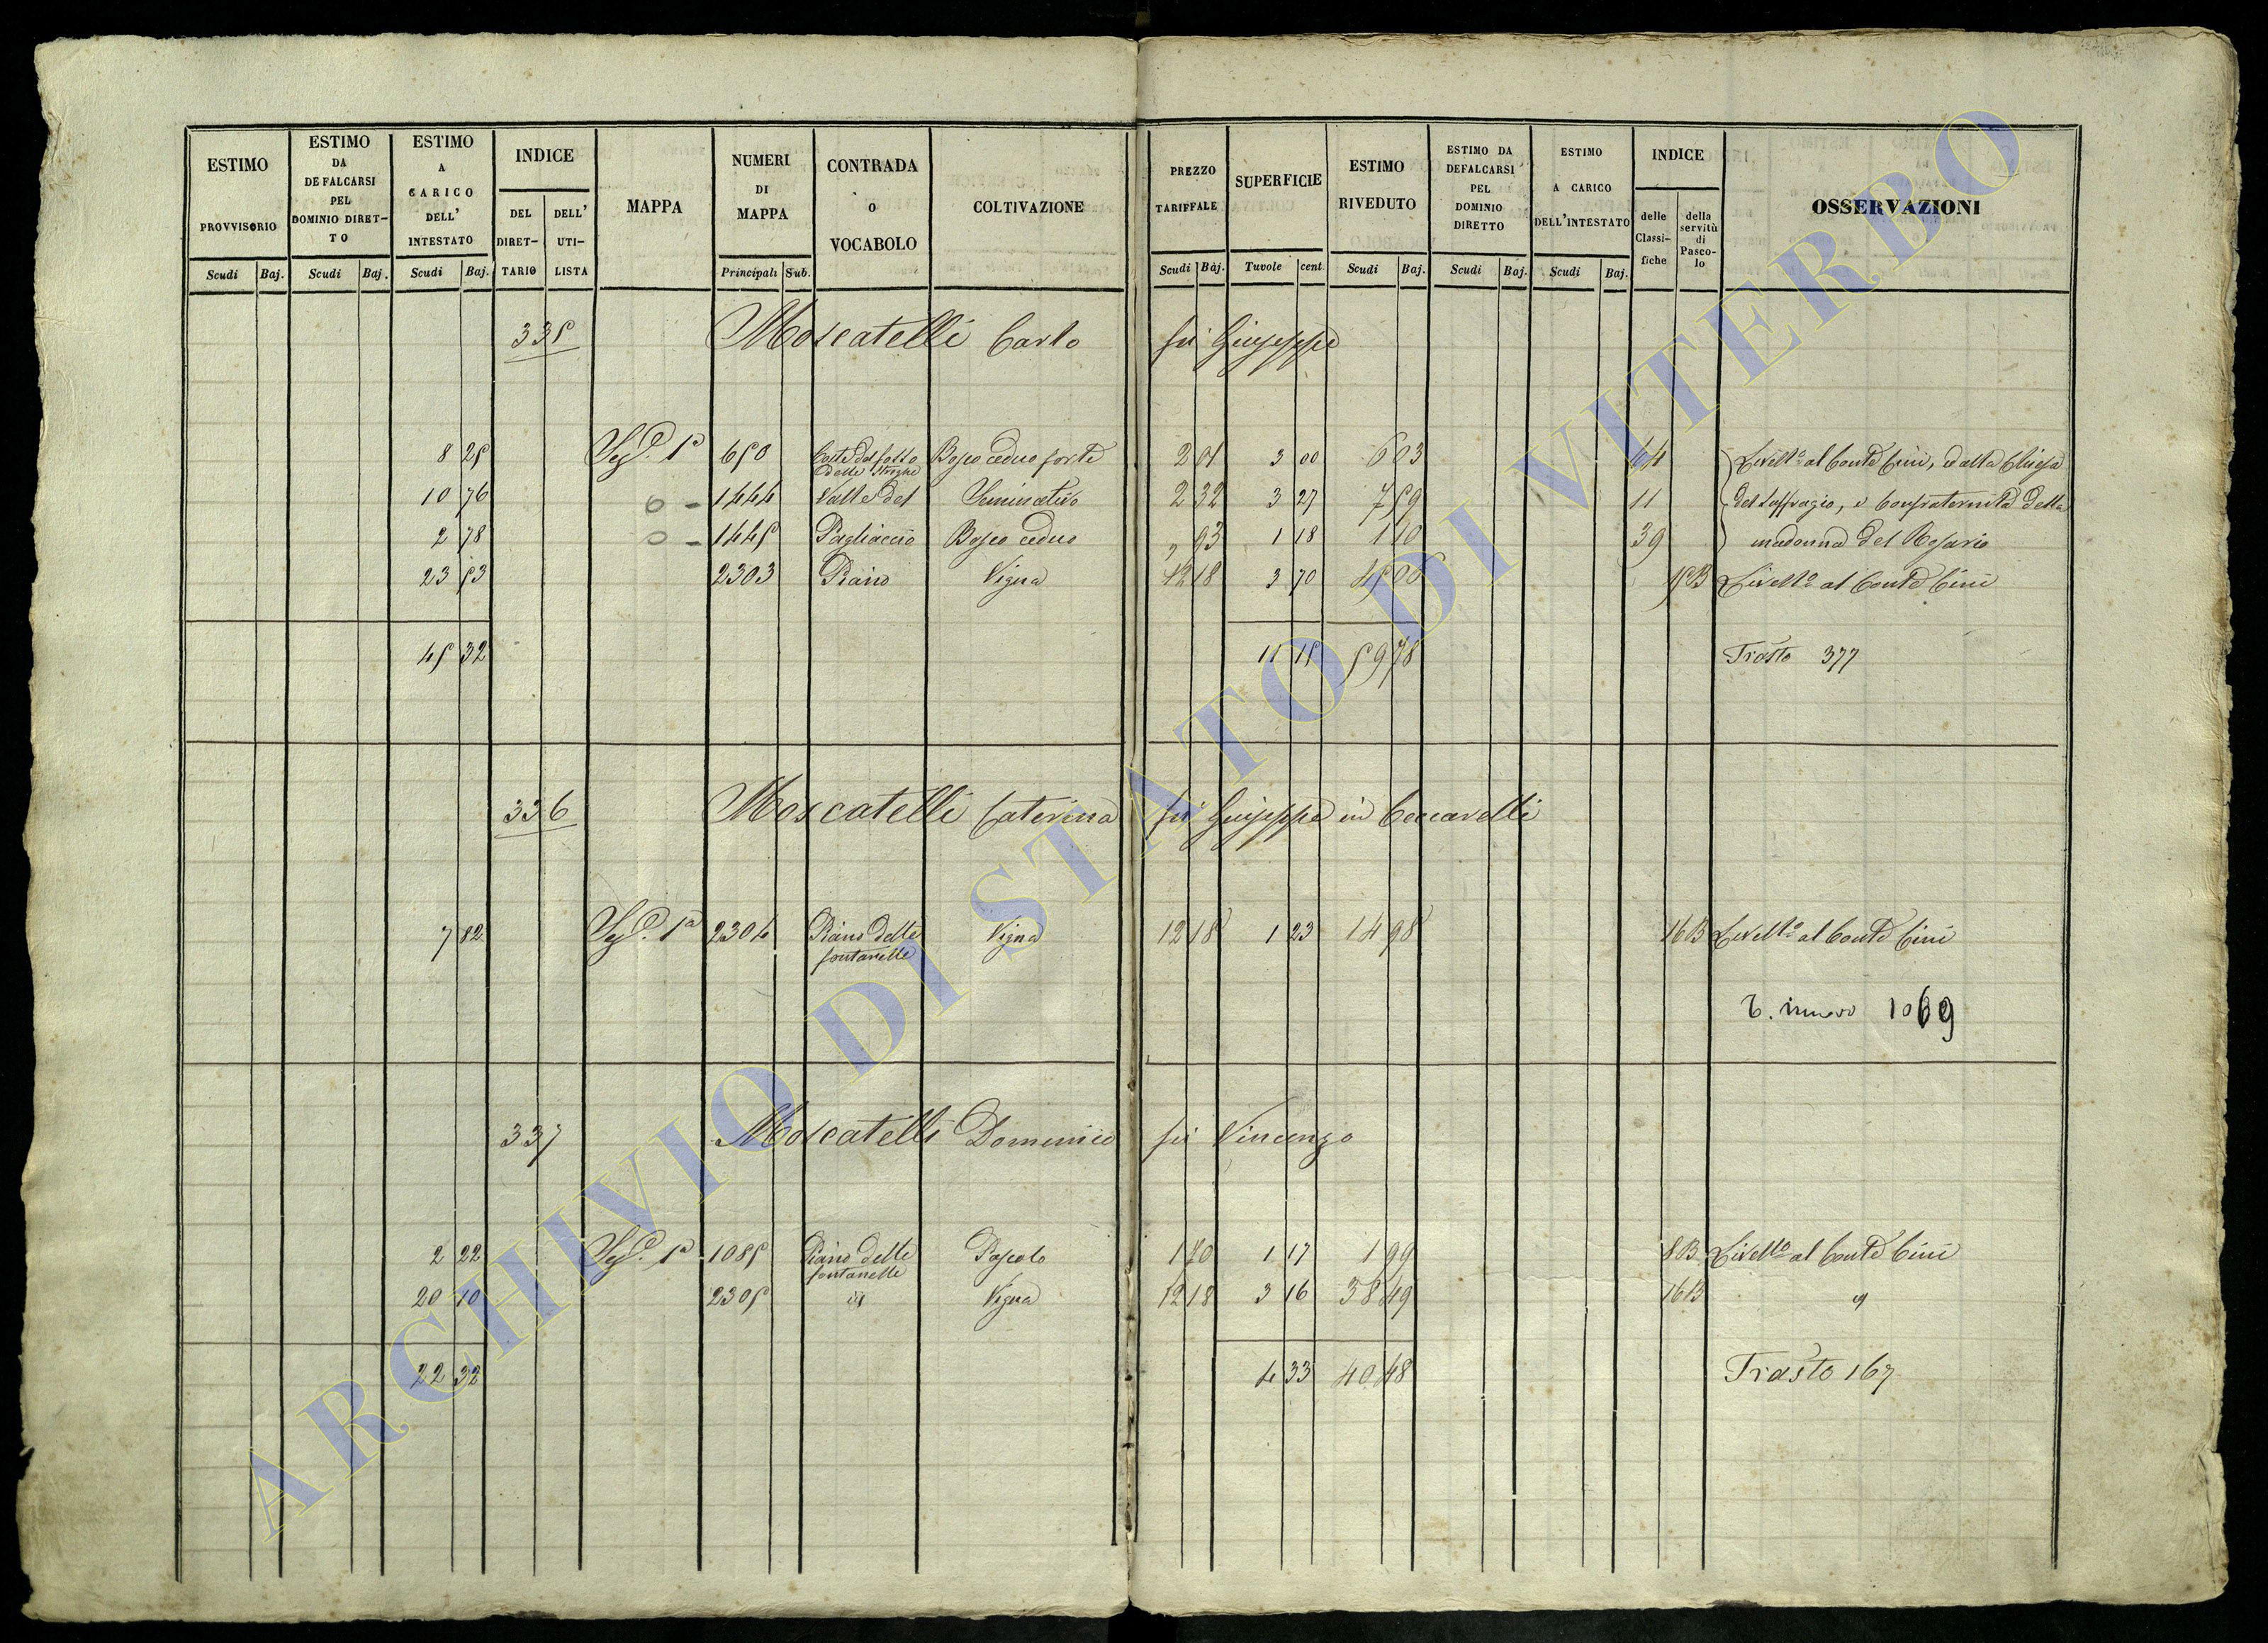 ESTIMO PROVVISORIO Scudi Baj.
ESTIMO DA DEFALCARSI PEL DOMINIO DIRET-TO Scudi Baj.
ESTIMO A CARICO DELL' INTESTATO Scudi Baj.
INDICE DEL DIRET-TARIO DELL' UTI-LISTA
MAPPA
NUMERI DI MAPPA Principali Sub.
CONTRADA O VOCABOLO
COLTIVAZIONE
PREZZO TARIFFALE Scudi Baj.
SUPERFICIE Tavole cent.
ESTIMO RIVEDUTO Scudi Baj.
ESTIMO DA DEFALCARSI PEL DOMINIO DIRETTO Scudi Baj.
ESTIMO A CARICO DELL'INTESTATO Scudi Baj.
INDICE delle Classi-fiche della servitù di Pasco-lo
OSSERVAZIONI
335 Moscatelli Carlo fu Giuseppe
8 25 Sez. 1a 650 Coste del fosso delle Streghe Bosco ceduo forte 2 01 3 00 6 03 44 Livello al Conte Cini, ed alla Chiesa
10 76 1444 Valle del Seminativo 2 32 3 27 7 59 11 del Suffragio, e Confraternita della
2 78 1445 Pagliaccio Bosco ceduo " 93 1 18 1 10 39 madonna del Rosario
23 53 2303 Piano Vigna 12 18 3 70 45 06 15B Livello al Conte Cini
45 32 11 15 59 78 Trasto 377
336 Moscatelli Caterina fu Giuseppe in Ceccarelli
7 82 Sez. 1a 2304 Piano delle fontanelle Vigna 12 18 1 23 14 98 16B Livello al Conte Cini
1069
337 Moscatelli Domenico fu Vincenzo
2 22 Sez. 1a 1085 Piano delle fontanelle Pascolo 1 70 1 17 1 99 8B Livello al Conte Cini
20 10 2305 id Vigna 12 18 3 16 38 49 16B id
22 32 4 33 40 48 Trasto 167
ARCHIVIO DI STATO DI VITERBO